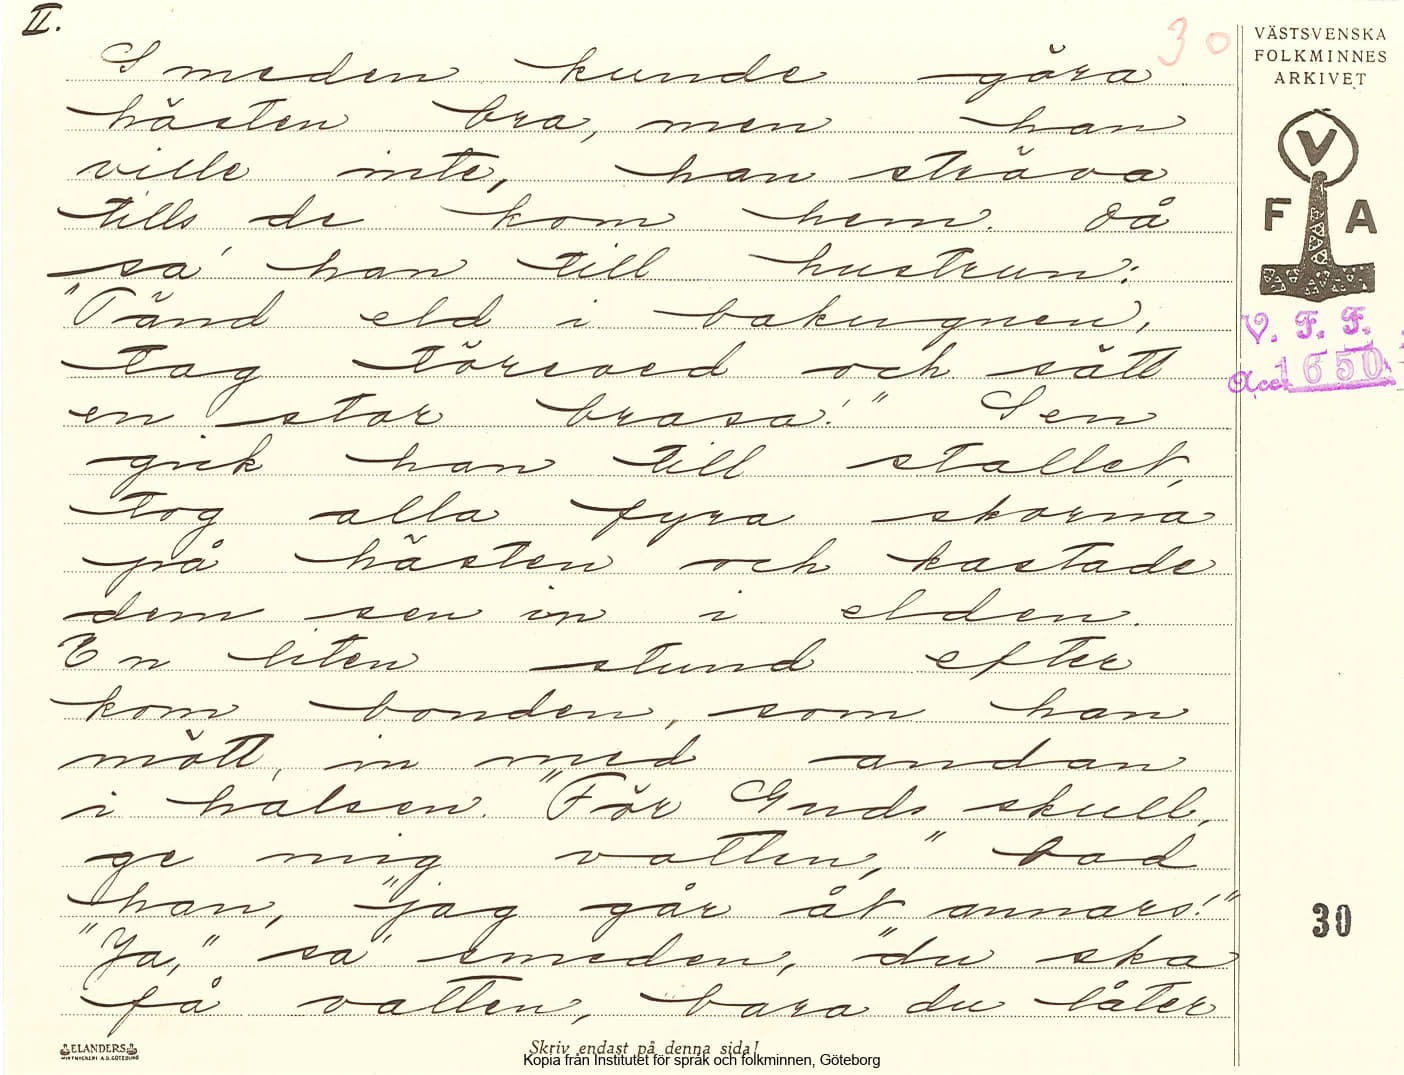 II.
30
VÄSTSVENSKA
FOLKMINNES
ARKIVET
V
F A
V. F. F.
Acc. 1650
Smeden kunde göra
hästen bra, men han
ville inte, han sträva
tills de kom hem. Då
sa' han till hustrun:
"Tänd eld i bakugnen,
tag töreved och sätt
en stor brasa!" Sen
gick han till stallet,
tog alla fyra skorna
på hästen och kastade
dem sen in i elden.
En liten stund efter
kom bonden, som han
mött, in med andan
i halsen. "För Guds skull,
ge mig vatten," bad
han, "jag går åt annars!"
"Ja," sa' smeden, "du ska
få vatten, bara du låter
30
ELANDERS
Skriv endast på denna sida!
Kopia från Institutet för språk och folkminnen, Göteborg